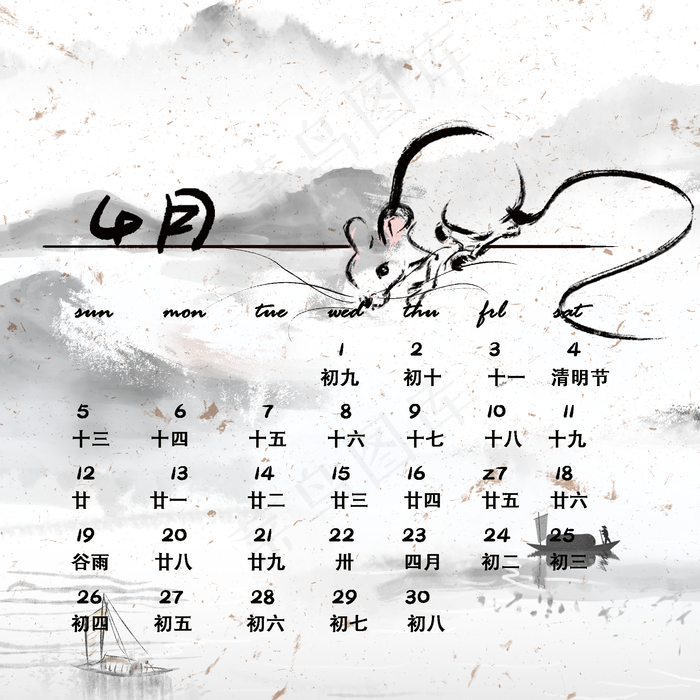 4月
sun mon tue wed thu fri sat
1 2 3 4
初九 初十 十一 清明节
5 6 7 8 9 10 11
十三 十四 十五 十六 十七 十八 十九
12 13 14 15 16 z7 18
廿 廿一 廿二 廿三 廿四 廿五 廿六
19 20 21 22 23 24 25
谷雨 廿八 廿九 卅 四月 初二 初三
26 27 28 29 30
初四 初五 初六 初七 初八